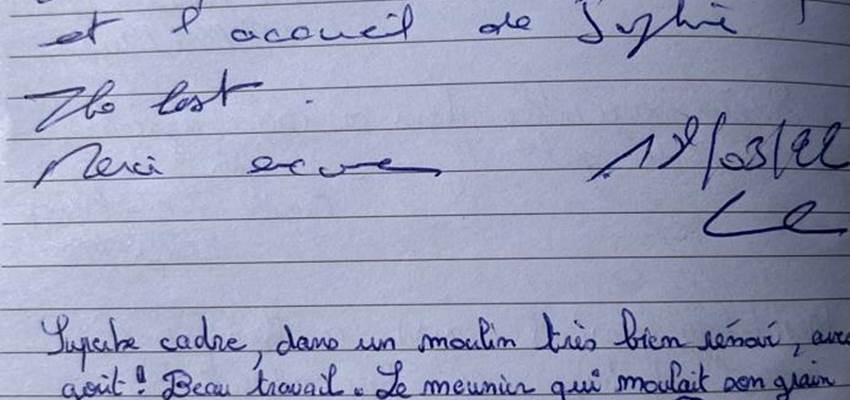 et l'accueil de Sophie !
The best.
Merci encore 18/03/22
Le
Superbe cadre, dans un moulin très bien rénové, avec
goût ! Beau travail. Le meunier qui moulait son grain